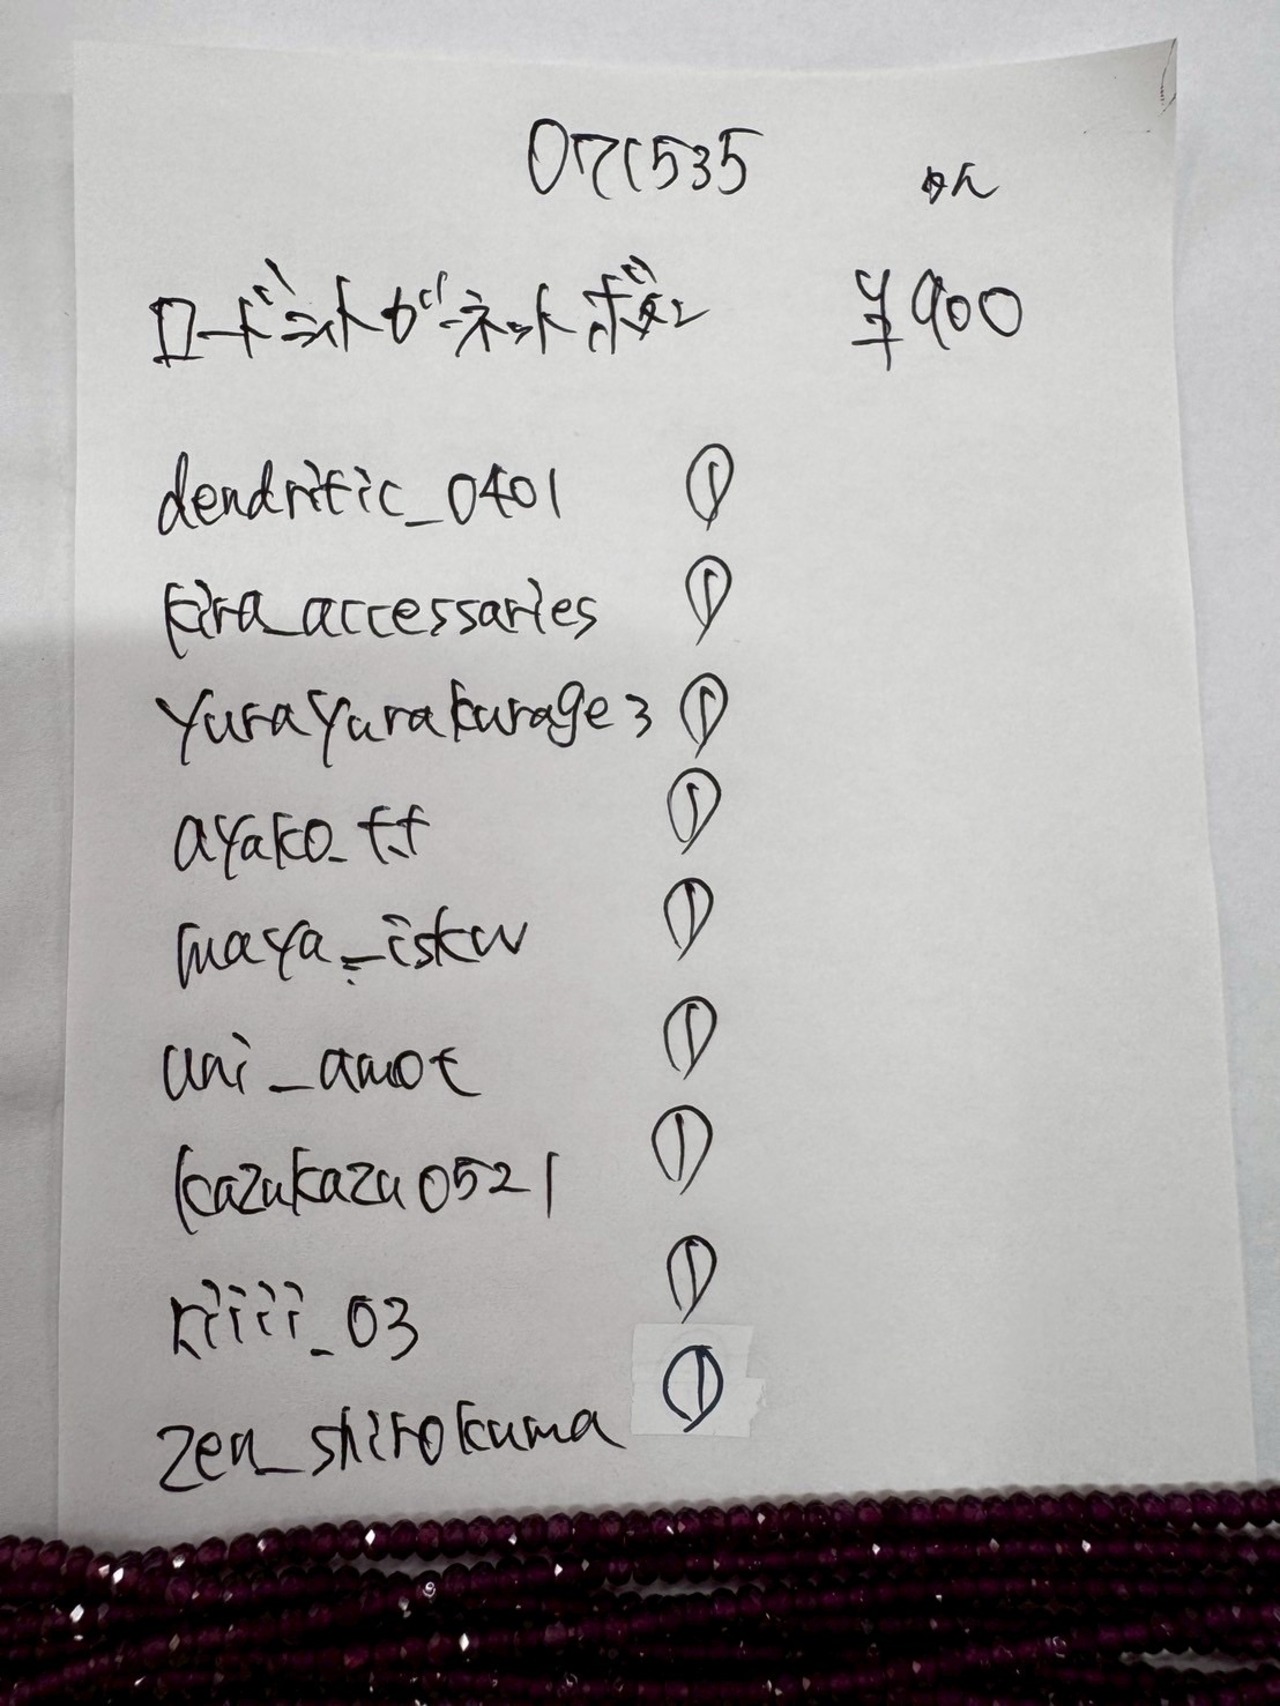 071535
ロードライトガーネットボタン ¥900
dendritic_0401 ①
kira_accessaries ①
yurayurakurage3 ①
ayako_tt ①
maya_iskw ①
uni_amot ①
kazukazu0521 ①
riiii_03 ①
zen_shirokuma ①